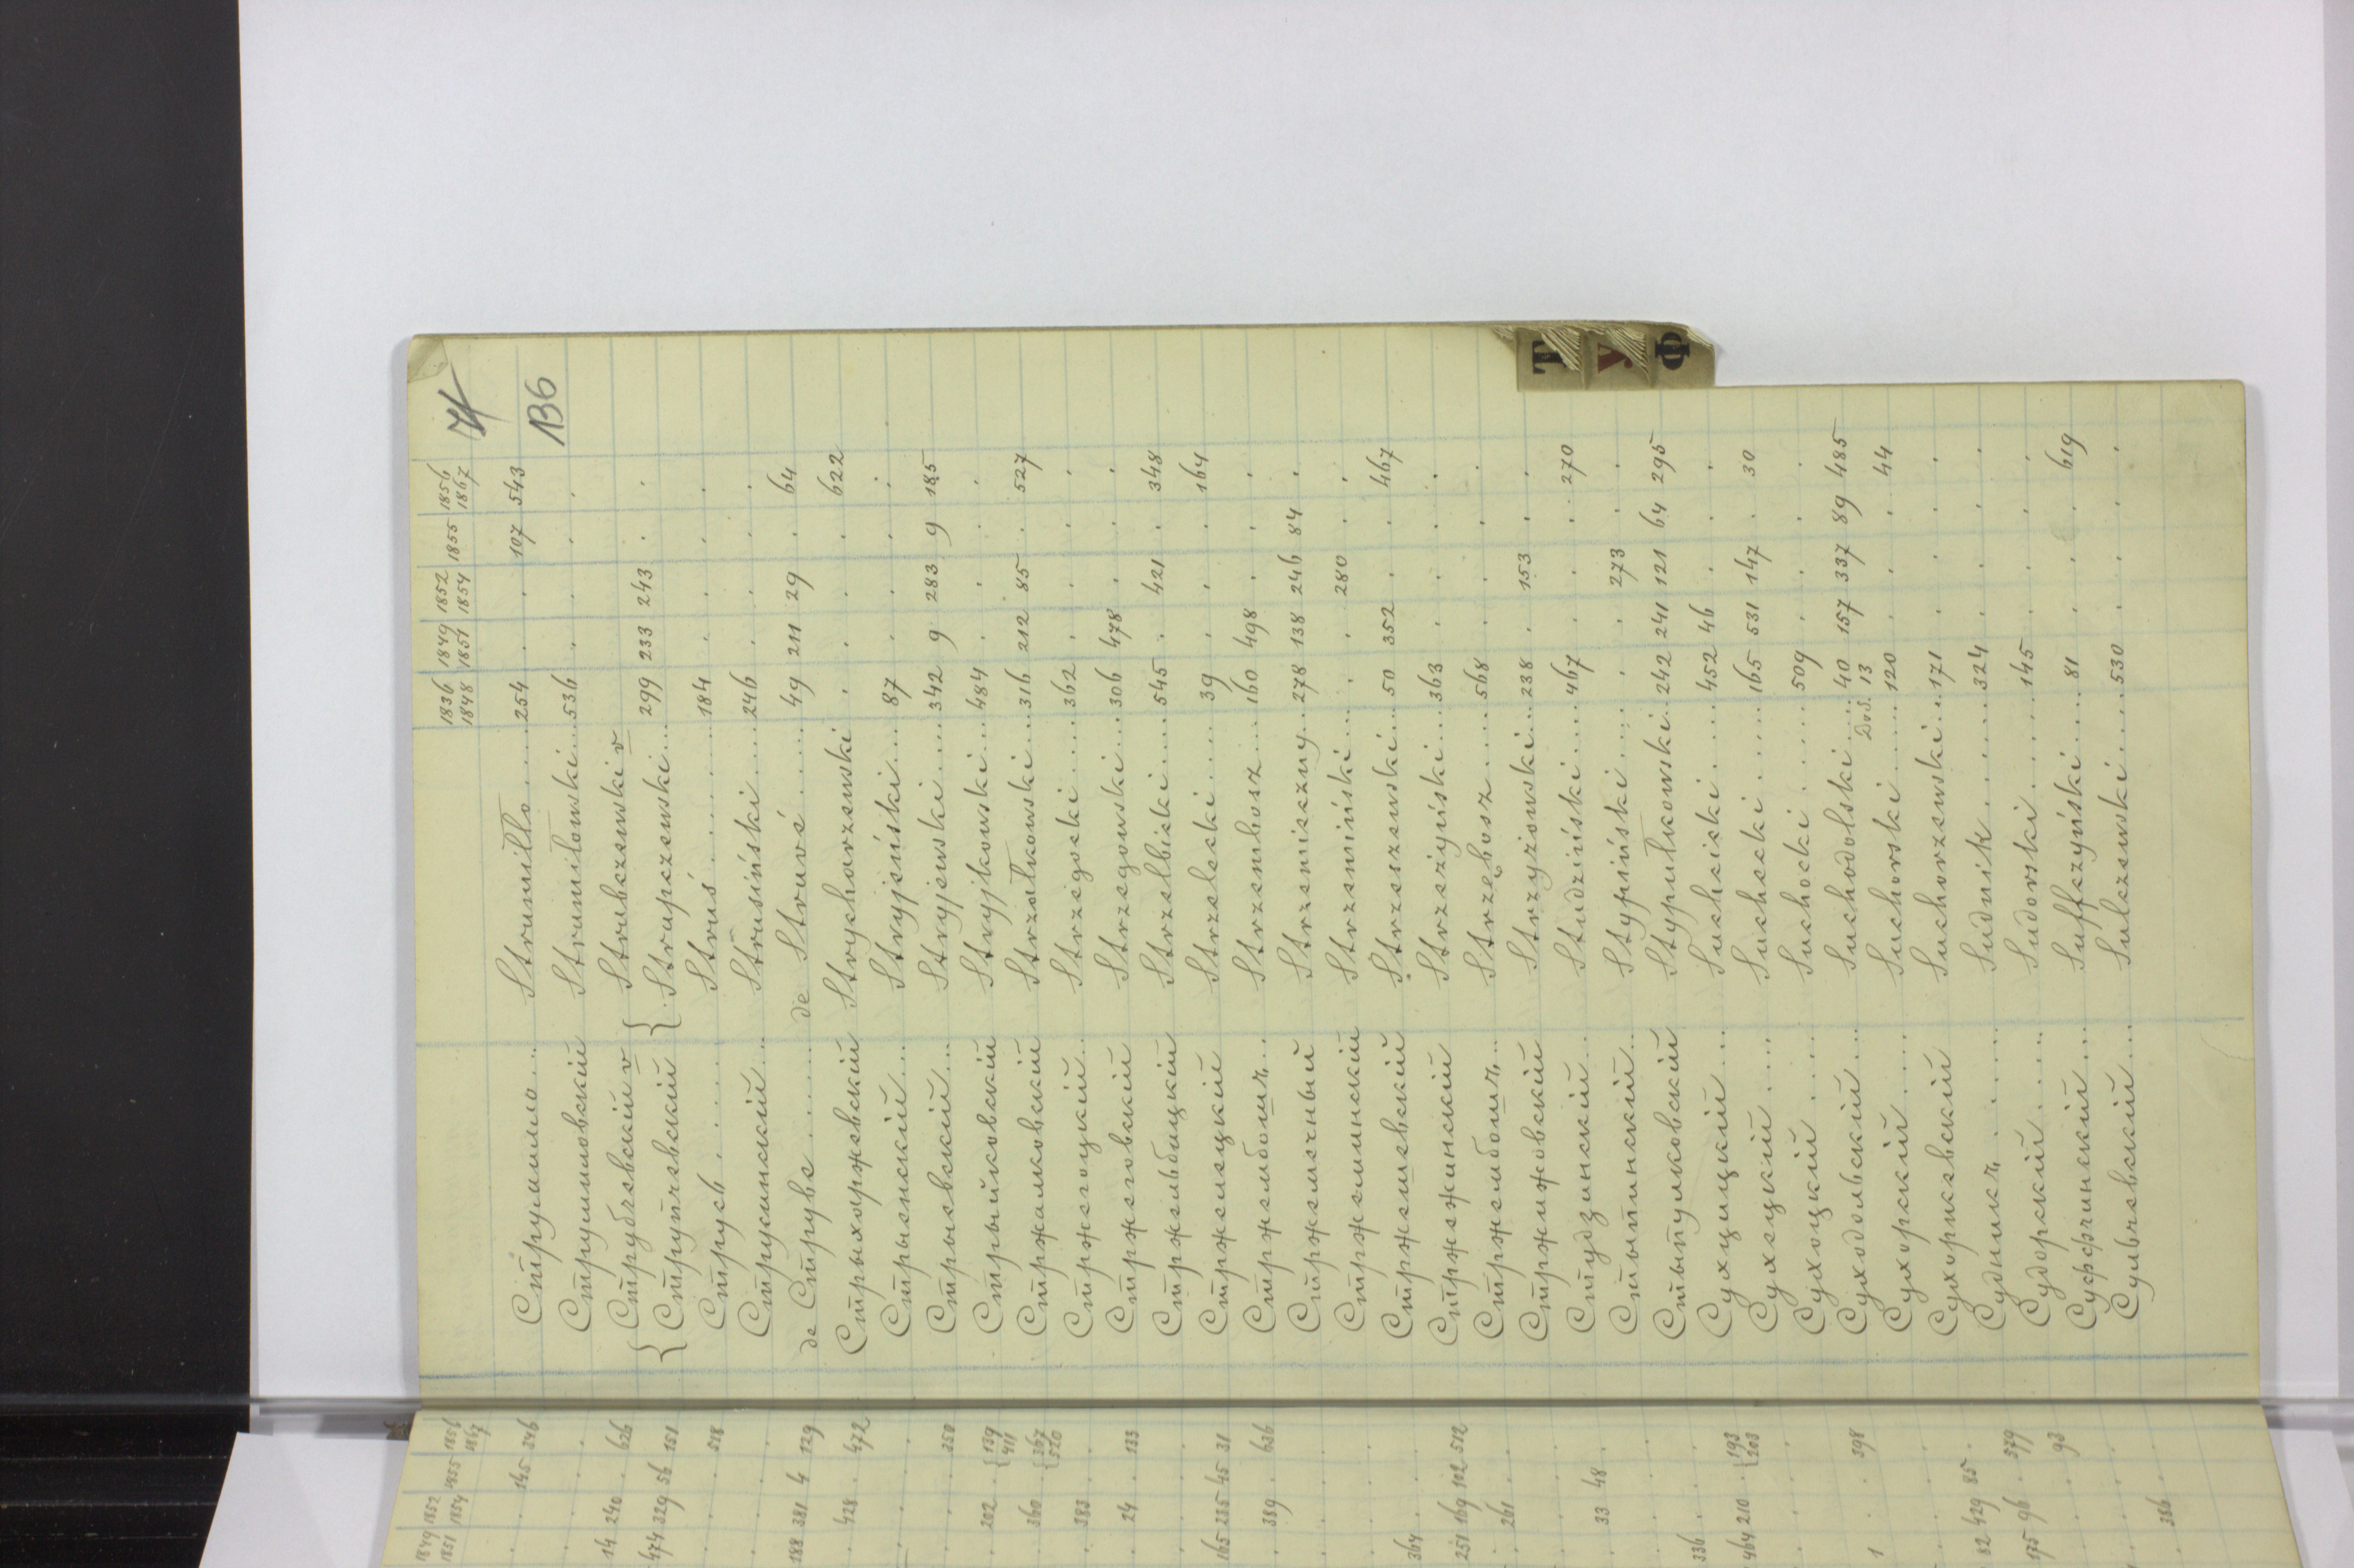 136
1836 1849 1852 1855 1856
1848 1851 1854 1867
Струмилло... Strumiłło..... 254 . . 107 543
Струмиловскій Strumiłowski... 536 . . . .
{ Струбчевскій v { Strubczewski v
{ Струпчевскій { Strupczewski... 299 233 243 . .
Струсь...... Struś........ 184 . . . .
Струсинскій... Strusiński..... 246 . . . .
de Струве...... de Struvé..... 49 211 29 . 64
Стрыхаржевскій Strycharzewski . . . . 622
Стрыенскій.... Stryjeński.... 87 . . . .
Стрыевскій.... Stryjewski.... 342 9 283 9 185
Стрыйковскій Stryjkowski... 484 . . . .
Стржалковскій Strzałkowski... 316 212 85 . 527
Стржегоцкій.. Strzegocki.... 362 . . . .
Стржеговскій Strzegowski... 306 478 . . .
Стржельбицкій Strzelbicki.... 545 . 421 . 348
Стржелецкій Strzelecki.... 39 . . . 164
Стржембошъ.. Strzembosz... 160 498 . . .
Стржемечный Strzemieczny.. 278 138 246 84 .
Стржеминскій Strzemiński... . . 280 . .
Стржешевскій Strzeszewski... 50 352 . . 467
Стржежинскій Strzeżyński... 363 . . . .
Стржембошъ... Strzębosz.... 568 . . . .
Стржижовскій Strzyżowski... 238 . 153 . .
Студзинскій... Studziński.... 467 . . . 270
Стыпинскій... Stypiński.... . . 273 . .
Стыпулковскій Stypułkowski.. 242 241 121 64 295
Сухцицкій.... Suchcicki..... 452 46 . . .
Сухецкій.... Suchecki..... 165 531 147 . 30
Сухоцкій.... Suchocki..... 509 . . . .
Суходольскій... Suchodolski.... 40 157 337 89 485
Dod. 13
Сухорскій.... Suchorski.... 120 . . . 44
Сухоржевскій Suchorzewski... 171 . . . .
Судникъ..... Sudnik..... 324 . . . .
Судорскій.... Sudorski..... 145 . . . .
Суффчинскій... Suffczyński.... 81 . . . 619
Сульчевскій... Sulczewski.... 530 . . . .
Т
У
Ф
1849 1852 1855 1856
1851 1854 1867
. . 145 346
14 240 . 626
474 329 56 151
. . . 518
188 381 4 129
. 428 . 472
. . . 250
. 202 . {139
{411
. 360 . {367
{520
. 383 . .
. 24 . 133
165 235 45 31
. 389 . 636
364 . . .
251 169 102 512
. 261 . .
. 33 48 .
336 . . .
464 210 . {193
{203
1 . . 398
82 429 85 .
175 96 . 579
. . . 93
. 386 . .